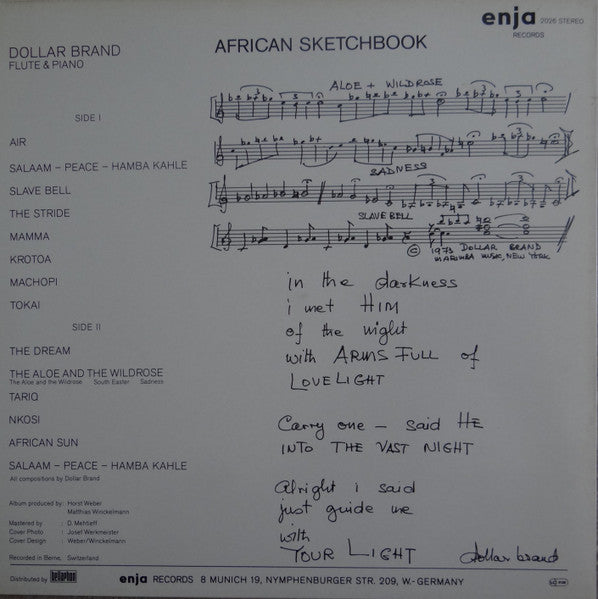 DOLLAR BRAND
FLUTE & PIANO
AFRICAN SKETCHBOOK
enja 2026 STEREO
RECORDS
SIDE I
AIR
SALAAM – PEACE – HAMBA KAHLE
SLAVE BELL
THE STRIDE
MAMMA
KROTOA
MACHOPI
TOKAI
SIDE II
THE DREAM
THE ALOE AND THE WILDROSE
The Aloe and the Wildrose South Easter Sadness
TARIQ
NKOSI
AFRICAN SUN
SALAAM – PEACE – HAMBA KAHLE
All compositions by Dollar Brand
Album produced by: Horst Weber
Matthias Winckelmann
Mastered by : D. Mehtieff
Cover Photo : Josef Werkmeister
Cover Design : Weber/Winckelmann
Recorded in Berne, Switzerland
ALOE + WILDROSE
3 3
SADNESS
3 3
SLAVE BELL
© 1973 DOLLAR BRAND
MARUMBA MUSIC, NEW YORK
in the darkness
i met HIM
of the night
with ARMS FULL of
LOVELIGHT
Carry one – said HE
INTO THE VAST NIGHT
Alright i said
just guide me
with
YOUR LIGHT dollar brand
Distributed by bellaphon
enja RECORDS 8 MUNICH 19, NYMPHENBURGER STR. 209, W.-GERMANY